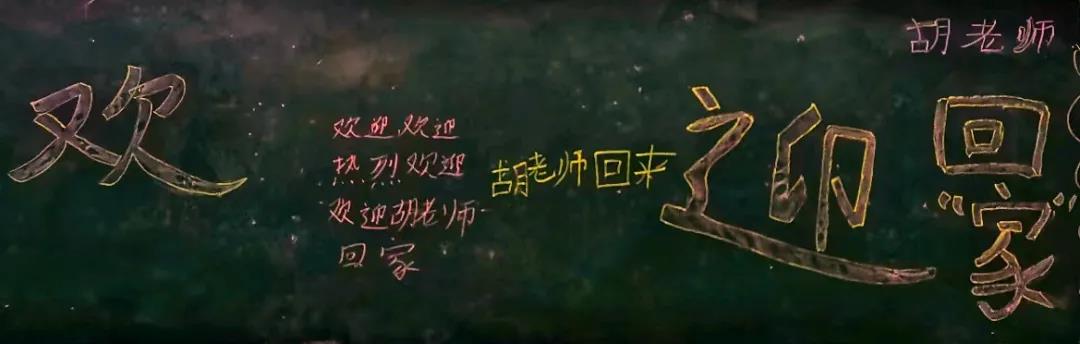 欢
欢迎欢迎
热烈欢迎
欢迎胡老师
回家
胡老师回来
迎
胡老师
回
"家"